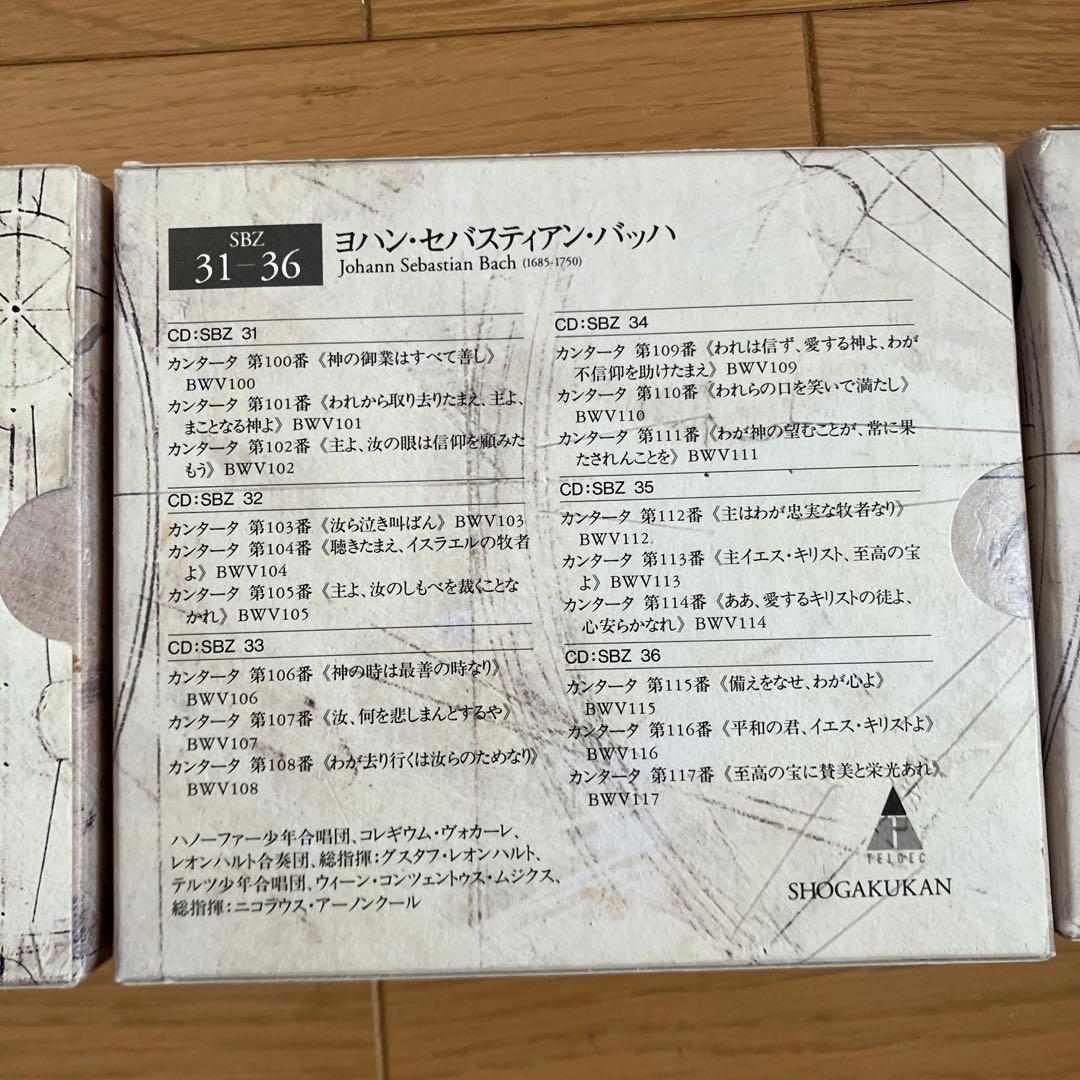 SBZ
31–36
ヨハン・セバスティアン・バッハ
Johann Sebastian Bach (1685-1750)
CD:SBZ 31
カンタータ 第100番《神の御業はすべて善し》
BWV100
カンタータ 第101番《われから取り去りたまえ、主よ、
まことなる神よ》BWV101
カンタータ 第102番《主よ、汝の眼は信仰を顧みた
もう》BWV102
CD:SBZ 32
カンタータ 第103番《汝ら泣き叫ばん》BWV103
カンタータ 第104番《聴きたまえ、イスラエルの牧者
よ》BWV104
カンタータ 第105番《主よ、汝のしもべを裁くことな
かれ》BWV105
CD:SBZ 33
カンタータ 第106番《神の時は最善の時なり》
BWV106
カンタータ 第107番《汝、何を悲しまんとするや》
BWV107
カンタータ 第108番《わが去り行くは汝らのためなり》
BWV108
CD:SBZ 34
カンタータ 第109番《われは信ず、愛する神よ、わが
不信仰を助けたまえ》BWV109
カンタータ 第110番《われらの口を笑いで満たし》
BWV110
カンタータ 第111番《わが神の望むことが、常に果
たされんことを》BWV111
CD:SBZ 35
カンタータ 第112番《主はわが忠実な牧者なり》
BWV112
カンタータ 第113番《主イエス・キリスト、至高の宝
よ》BWV113
カンタータ 第114番《ああ、愛するキリストの徒よ、
心安らかなれ》BWV114
CD:SBZ 36
カンタータ 第115番《備えをなせ、わが心よ》
BWV115
カンタータ 第116番《平和の君、イエス・キリストよ》
BWV116
カンタータ 第117番《至高の宝に賛美と栄光あれ》
BWV117
ハノーファー少年合唱団、コレギウム・ヴォカーレ、
レオンハルト合奏団、総指揮:グスタフ・レオンハルト、
テルツ少年合唱団、ウィーン・コンツェントゥス・ムジクス、
総指揮:ニコラウス・アーノンクール
TELDEC
SHOGAKUKAN